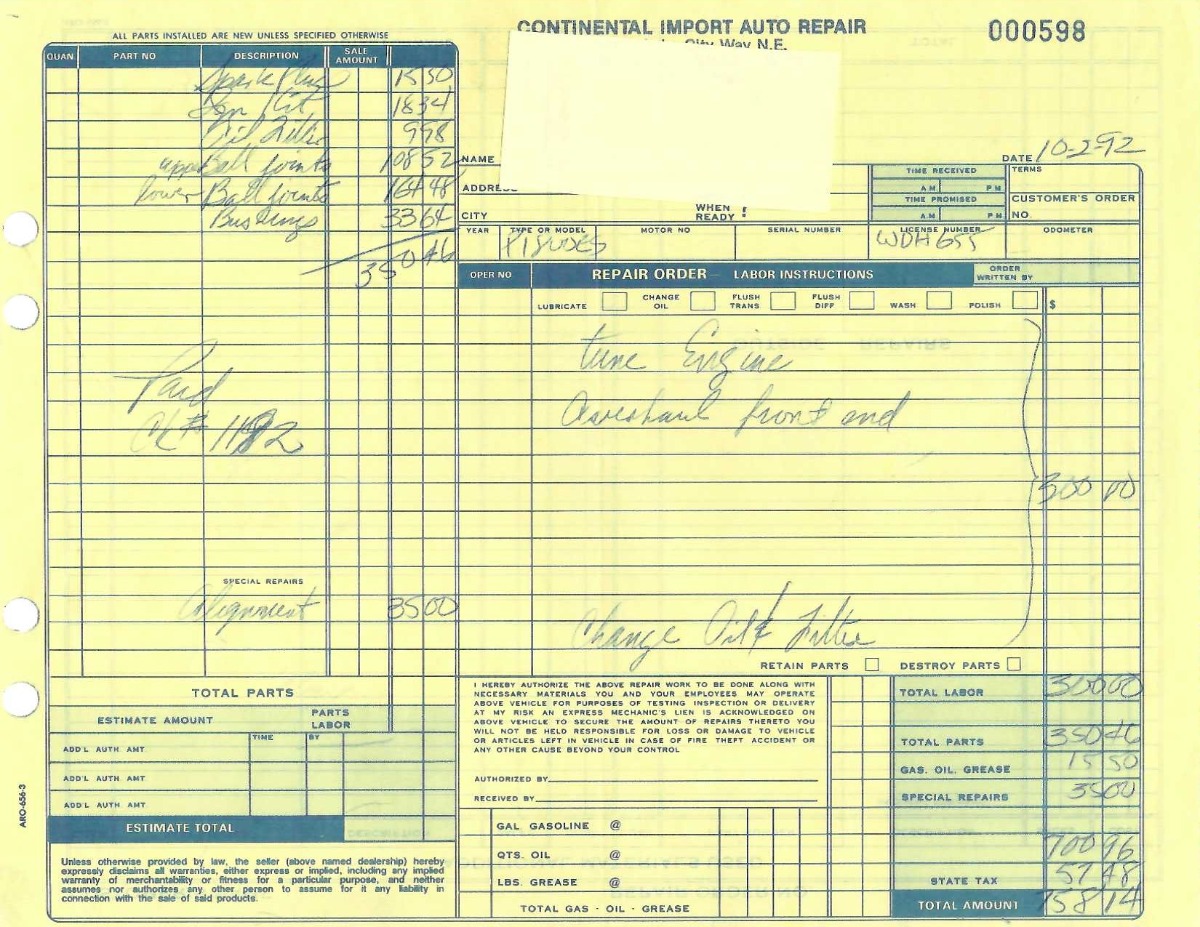 ALL PARTS INSTALLED ARE NEW UNLESS SPECIFIED OTHERWISE
CONTINENTAL IMPORT AUTO REPAIR
City Way N.E.
000598
QUAN PART NO DESCRIPTION SALE AMOUNT
Spark Plug 15 50
Ign Kit 18 34
Oil Filter 9 98
upper Ball joints 108 52
lower Ball joints 164 48
Bushings 33 64
350 46
Paid
Ck#
SPECIAL REPAIRS
Alignment 35 00
DATE 10-2-92
NAME
ADDRESS
CITY
WHEN READY
TIME RECEIVED
AM PM
TIME PROMISED
AM PM
TERMS
CUSTOMER'S ORDER NO.
YEAR TYPE OR MODEL MOTOR NO SERIAL NUMBER LICENSE NUMBER ODOMETER
P1800ES WDH655
OPER NO REPAIR ORDER — LABOR INSTRUCTIONS ORDER WRITTEN BY
LUBRICATE CHANGE OIL FLUSH TRANS FLUSH DIFF WASH POLISH $
tune Engine
Overhaul front end
300 00
Change Oil & Filter
RETAIN PARTS DESTROY PARTS
TOTAL PARTS
ESTIMATE AMOUNT PARTS LABOR
TIME BY
ADD'L AUTH. AMT.
ADD'L AUTH. AMT.
ADD'L AUTH. AMT.
ESTIMATE TOTAL
ARO-656-3
Unless otherwise provided by law, the seller (above named dealership) hereby
expressly disclaims all warranties, either express or implied, including any implied
warranty of merchantability or fitness for a particular purpose, and neither
assumes nor authorizes any other person to assume for it any liability in
connection with the sale of said products.
I HEREBY AUTHORIZE THE ABOVE REPAIR WORK TO BE DONE ALONG WITH
NECESSARY MATERIALS YOU AND YOUR EMPLOYEES MAY OPERATE
ABOVE VEHICLE FOR PURPOSES OF TESTING INSPECTION OR DELIVERY
AT MY RISK AN EXPRESS MECHANIC'S LIEN IS ACKNOWLEDGED ON
ABOVE VEHICLE TO SECURE THE AMOUNT OF REPAIRS THERETO YOU
WILL NOT BE HELD RESPONSIBLE FOR LOSS OR DAMAGE TO VEHICLE
OR ARTICLES LEFT IN VEHICLE IN CASE OF FIRE THEFT ACCIDENT OR
ANY OTHER CAUSE BEYOND YOUR CONTROL
AUTHORIZED BY
RECEIVED BY
GAL GASOLINE @
QTS. OIL @
LBS. GREASE @
TOTAL GAS - OIL - GREASE
TOTAL LABOR 300 00
TOTAL PARTS 350 46
GAS. OIL. GREASE 15 50
SPECIAL REPAIRS 35 00
700 96
STATE TAX 57 48
TOTAL AMOUNT 758 14